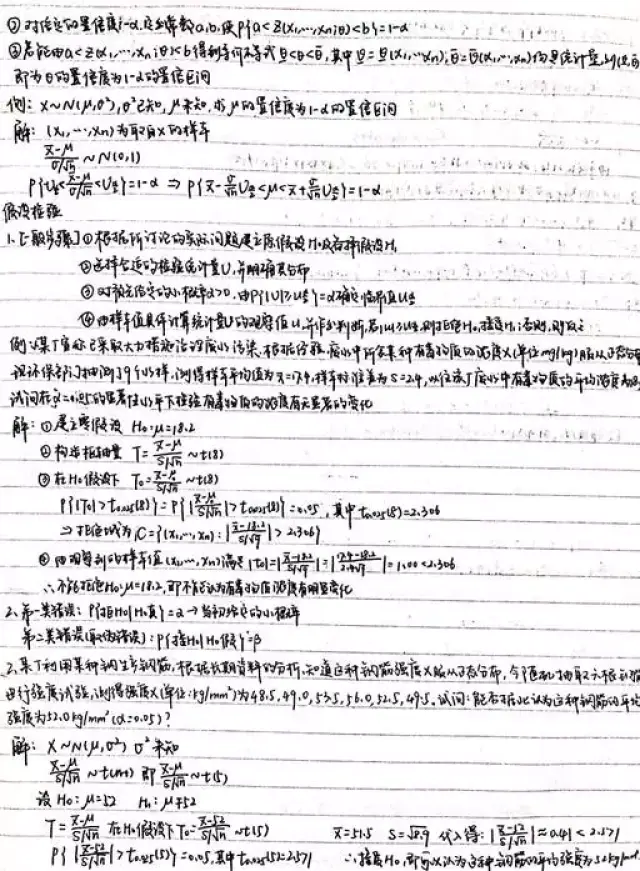 ①对给定的置信度1-α,定出常数a,b,使P{a<Z(x₁,…,xₙ;θ)<b}=1-α
②若能由a<Z(x₁,…,xₙ;θ)<b得到等价不等式θ̲<θ<θ̄,其中θ̲=θ̲(x₁,…,xₙ),θ̄=θ̄(x₁,…,xₙ)均是统计量,则(θ̲,θ̄)
即为θ的置信度为1-α的置信区间
例: X~N(μ,σ²),σ²已知,μ未知,求μ的置信度为1-α的置信区间
解: (x₁,…,xₙ)为取自X的样本
(x̄-μ)/(σ/√n) ~ N(0,1)
P{ <(x̄-μ)/(σ/√n)<U_{α/2}}=1-α ⇒ P{x̄-(σ/√n)U_{α/2}<μ<x̄+(σ/√n)U_{α/2}}=1-α
假设检验
1.[一般步骤]①根据所讨论的实际问题建立原假设H₀及备择假设H₁
②选择合适的检验统计量U,并明确其分布
③对预先给定的小概率α>0,由P{|U|≥U_{α/2}}=α确定临界值U_{α/2}
④由样本值具体计算统计量U的观察值u,并作出判断,若|u|≥U_{α/2},则拒绝H₀,接受H₁;否则,
例:某厂宣称已采取大力措施治理废水污染,根据经验,废水中所含某种有毒物质的浓度X(单位mg/kg)服从正态分布
现环保部门抽测了9个水样,测得样本平均值为x̄=17.4,样本标准差为s=2.4,以往该厂废水中有毒物质的平均浓度为
试问在α=0.05的显著性水平下检验有毒物质的浓度有无显著的变化
解: ①建立零假设 H₀:μ=18.2
②构造枢轴量 T=(x̄-μ)/(S/√n) ~t(8)
③在H₀假设下 T₀=(x̄-μ)/(S/√n) ~t(8)
P{|T₀|>t₀.₀₂₅(8)}=P{|(x̄-μ)/(S/√n)|>t₀.₀₂₅(8)}=0.05, 其中t₀.₀₂₅(8)=2.306
⇒拒绝域为 C={(x₁,…,xₙ):|(x̄-18.2)/(s/√9)|>2.306}
④由观察到的样本值(x₁,…,xₙ)满足|T₀|=|(x̄-18.2)/(s/√9)|=|(17.4-18.2)/(2.4/√9)|=1.00<2.306
∴不能拒绝H₀:μ=18.2,即不能认为有毒物质浓度有明显变化
2.第一类错误: P{拒H₀|H₀真}=α→当初给定的小概率
第二类错误(取伪错误): P{接H₀|H₀假}=β
2.某厂利用某种钢生产钢筋,根据长期资料的分析,知道这种钢筋强度X服从正态分布,今随机抽取六根钢筋
进行强度试验,测得强度X(单位:kg/mm²)为48.5,49.0,53.5,56.0,52.5,49.5,试问:能否据此认为这种钢筋的平均
强度为52.0kg/mm²(α=0.05)?
解: X~N(μ,σ²) σ²未知
(x̄-μ)/(S/√n) ~t(n-1) 即(x̄-μ)/(S/√n) ~t(5)
设H₀:μ=52 H₁:μ≠52
T=(x̄-μ)/(S/√n) 在H₀假设下T₀=(x̄-52)/(S/√n) ~t(5) x̄=51.5 S=√8.9 代入得:|(x̄-52)/(S/√n)|≈0.41<2.571
P{|(x̄-52)/(S/√n)|>t₀.₀₂₅(5)}=0.05,其中t₀.₀₂₅(5)=2.571 ∴接受H₀,即可以认为这种钢筋的平均强度为52kg/mm²